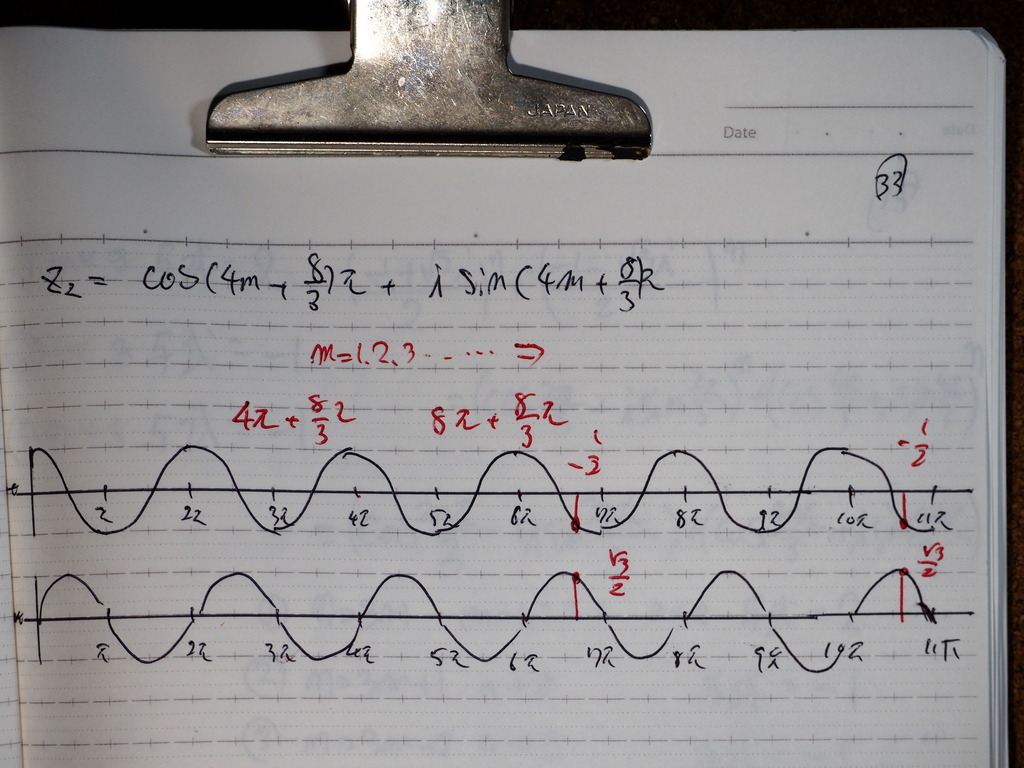 JAPAN
Date
33
z₂ = cos(4m + 8/3)π + i sin(4m + 8/3)π
m=1.2.3 ...... ⇒
4π + 8/3 π 8π + 8/3 π
-1/2 -1/2
0 π 2π 3π 4π 5π 6π 7π 8π 9π 10π 11π
√3/2 √3/2
π 2π 3π 4π 5π 6π 7π 8π 9π 10π 11π